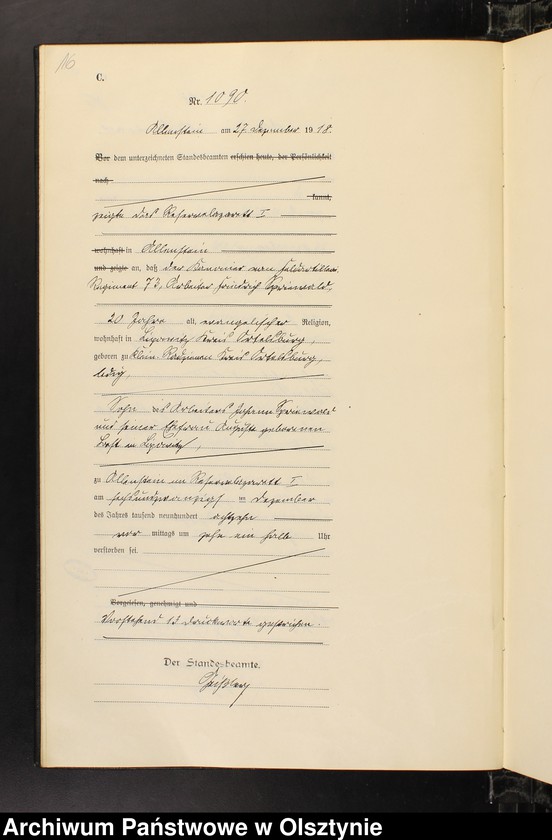 16
C.
Nr. 1090.
Allenstein am 27. Dezember 1918.
Vor dem unterzeichneten Standesbeamten erschien heute, der Persönlichkeit
nach
kannt,
zeigte das Reservelazarett I
wohnhaft in Allenstein
und zeigte an, daß der Kanonier vom Feldartillerie
Regiment 73, Arbeiter Friedrich
20 Jahre alt, evangelischer Religion,
wohnhaft in Lipowitz Kreis Ortelsburg,
geboren zu Klein Radzienen Kreis Ortelsburg,
ledig,
Sohn des Arbeiters Johann
und seiner Ehefrau Auguste geborenen
in Lipowitz,
zu Allenstein im Reservelazarett I
am sechsundzwanzigsten Dezember
des Jahres tausend neunhundert achtzehn
vor mittags um zehn ein halb Uhr
verstorben sei.
Vorgelesen, genehmigt und
Vorstehend 13 Druckworte gestrichen.
Der Standesbeamte.
Archiwum Państwowe w Olsztynie